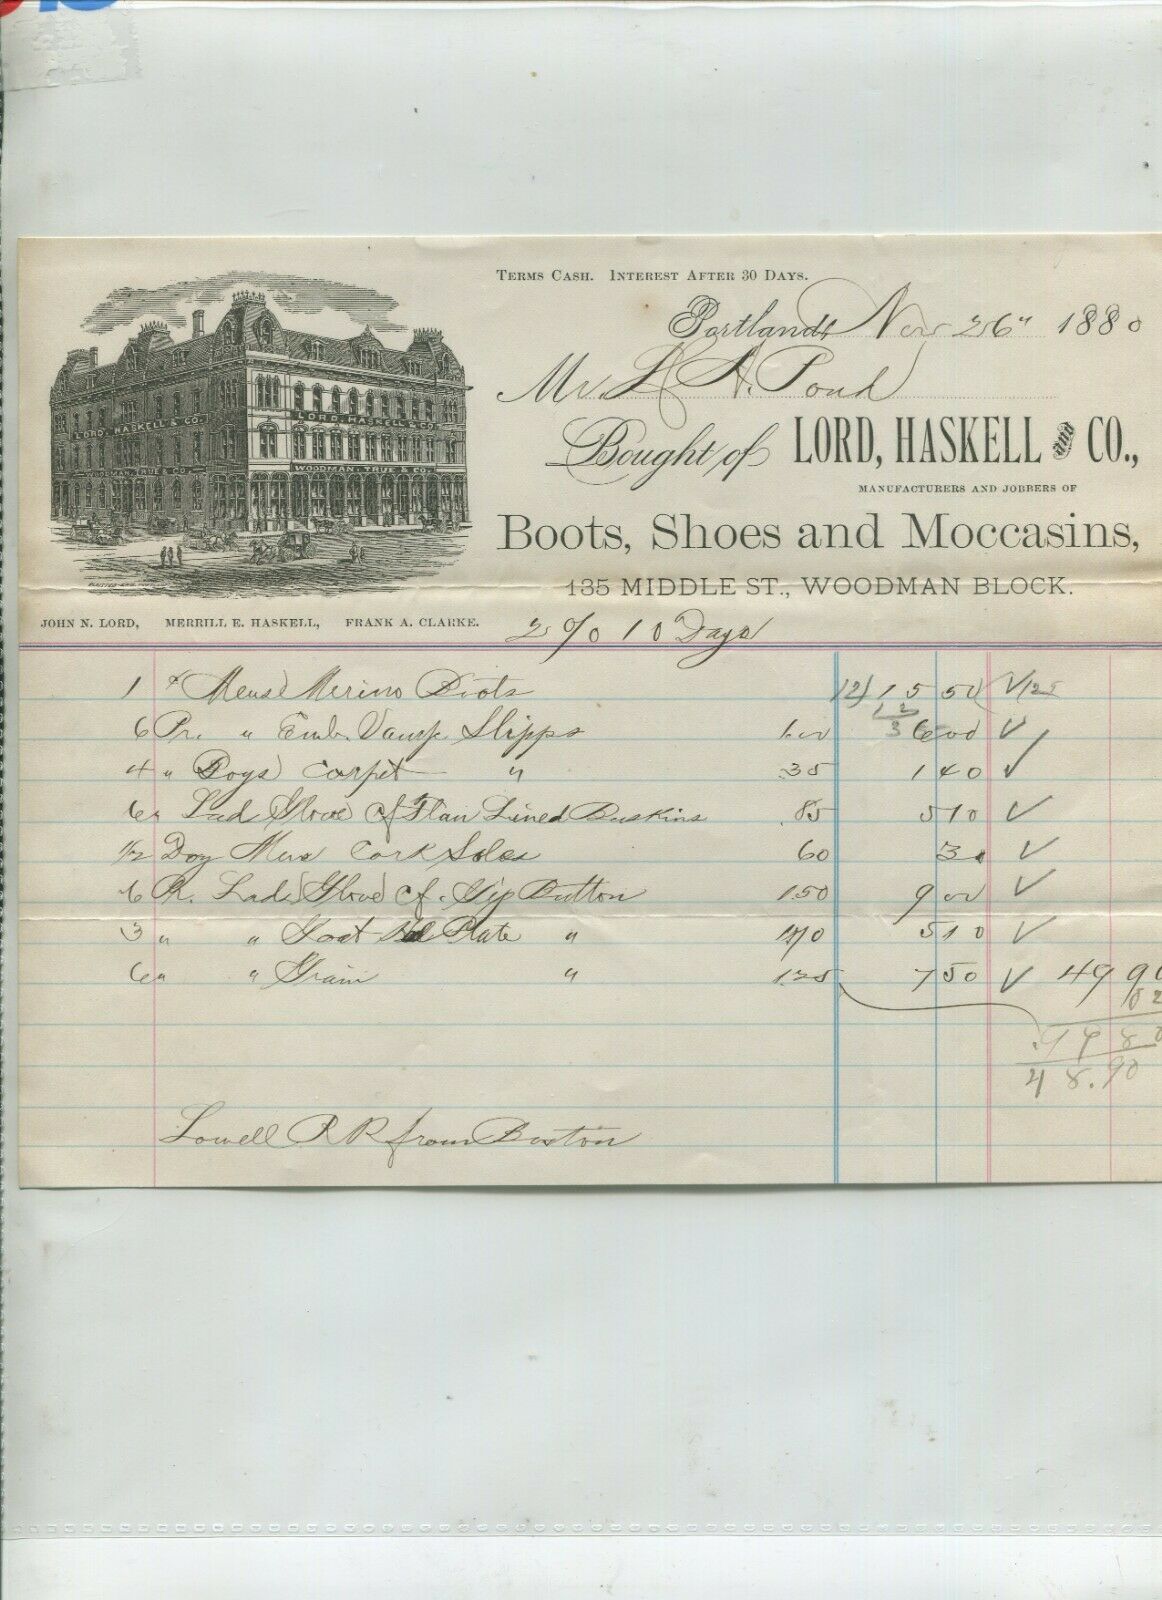 TERMS CASH. INTEREST AFTER 30 DAYS.
Portland, Nov 26" 1880
Mr L A. Pond
Bought of LORD, HASKELL AND CO.,
MANUFACTURERS AND JOBBERS OF
Boots, Shoes and Moccasins,
135 MIDDLE ST., WOODMAN BLOCK.
LORD, HASKELL & CO.
LORD, HASKELL & CO.
WOODMAN, TRUE & CO.
WOODMAN, TRUE & CO.
JOHN N. LORD, MERRILL E. HASKELL, FRANK A. CLARKE.
2 % 10 Days
1 Mens Merino Boots 12) 15 50 ✓ 125
12
3
6 Pr. " Emb. Vamp Slipps 1.00 6 00 ✓
4 " Boys Carpet " .35 1 40 ✓
6 " Lad Glove Cf Flan Lined Buskins .85 5 10 ✓
1/2 Doz Mens Cork Soles 60 30 ✓
6 Pr. Lads Glove Cf. Button 1.50 9 00 ✓
3 " " Goat Plate " 1.70 5 10 ✓
6 " " Grain " 1.25 7 50 ✓ 49 90
48.90
Lowell R R from Boston